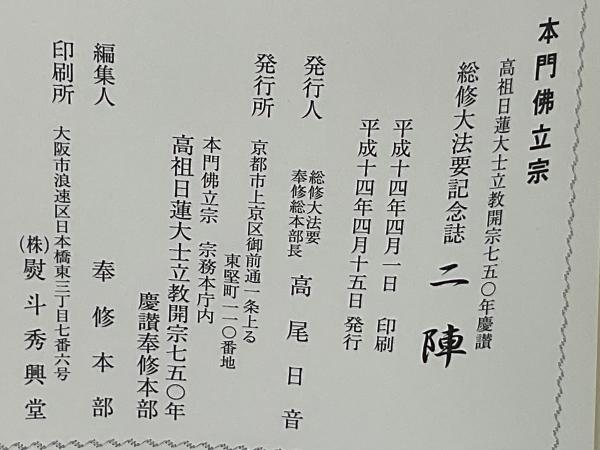 本門佛立宗
高祖日蓮大士立教開宗七五〇年慶讃
総修大法要記念誌 二陣
平成十四年四月一日 印刷
平成十四年四月十五日 発行
発行人 総修大法要
奉修総本部長 高尾日音
発行所 京都市上京区御前通一条上る
東竪町一一〇番地
本門佛立宗 宗務本庁内
高祖日蓮大士立教開宗七五〇年
慶讃奉修本部
編集人 奉修本部
印刷所 大阪市浪速区日本橋東三丁目七番六号
(株)熨斗秀興堂